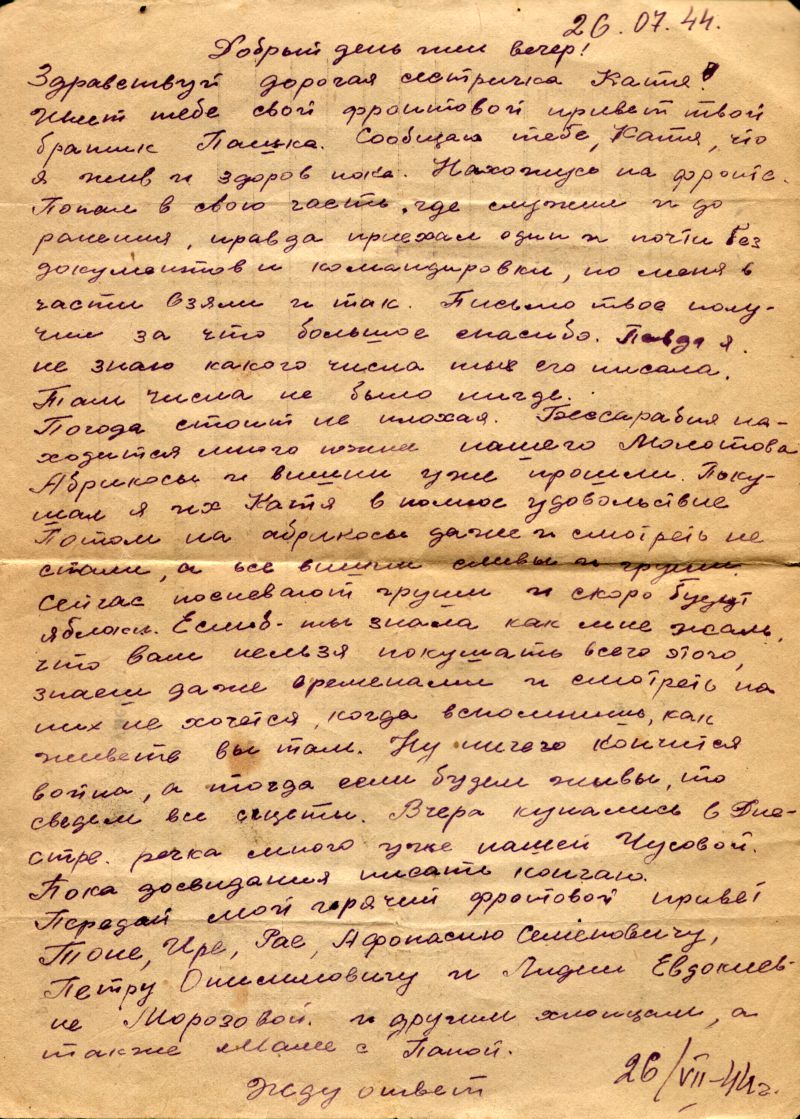 26.07.44.
Добрый день или вечер!
Здравствуй дорогая сестричка Катя!
Шлет тебе свой фронтовой привет твой
братик Пашка. Сообщаю тебе, Катя, что
я жив и здоров пока. Нахожусь на фронте.
Попал в свою часть, где служил и до
ранения, правда приехал один и почти без
документов и командировки, но меня в
части взяли и так. Письмо твое полу-
чил за что большое спасибо. Правда я
не знаю какого числа ты его писала.
Там числа не было нигде.
Погода стоит не плохая. Бессарабия на-
ходится много южнее нашего Молотова
Абрикосы и вишни уже прошли. Поку-
шал я их Катя в полное удовольствие
Потом на абрикосы даже и смотреть не
стали, а все вишни сливы и груши.
Сейчас поспевают груши и скоро будут
яблоки. Еслиб-ты знала как мне жаль,
что вам нельзя покушать всего этого,
знаеш даже временами и смотреть на
них не хочется, когда вспомнишь, как
живете вы там. Ну ничего кончится
война, а тогда если будем живы, то
сведем все счеты. Вчера купались в Дне-
стре. речка много уже нашей Чусовой.
Пока досвидания писать кончаю.
Передай мой горячий фронтовой привет
Тоне, Ире, Рае, Афонасию Семеновичу,
Петру Онисимовичу и Лидии Евдокиев-
не Морозовой. и другим хлопцам, а
также Маме с Папой.
Жду ответ
26/VII-44г.